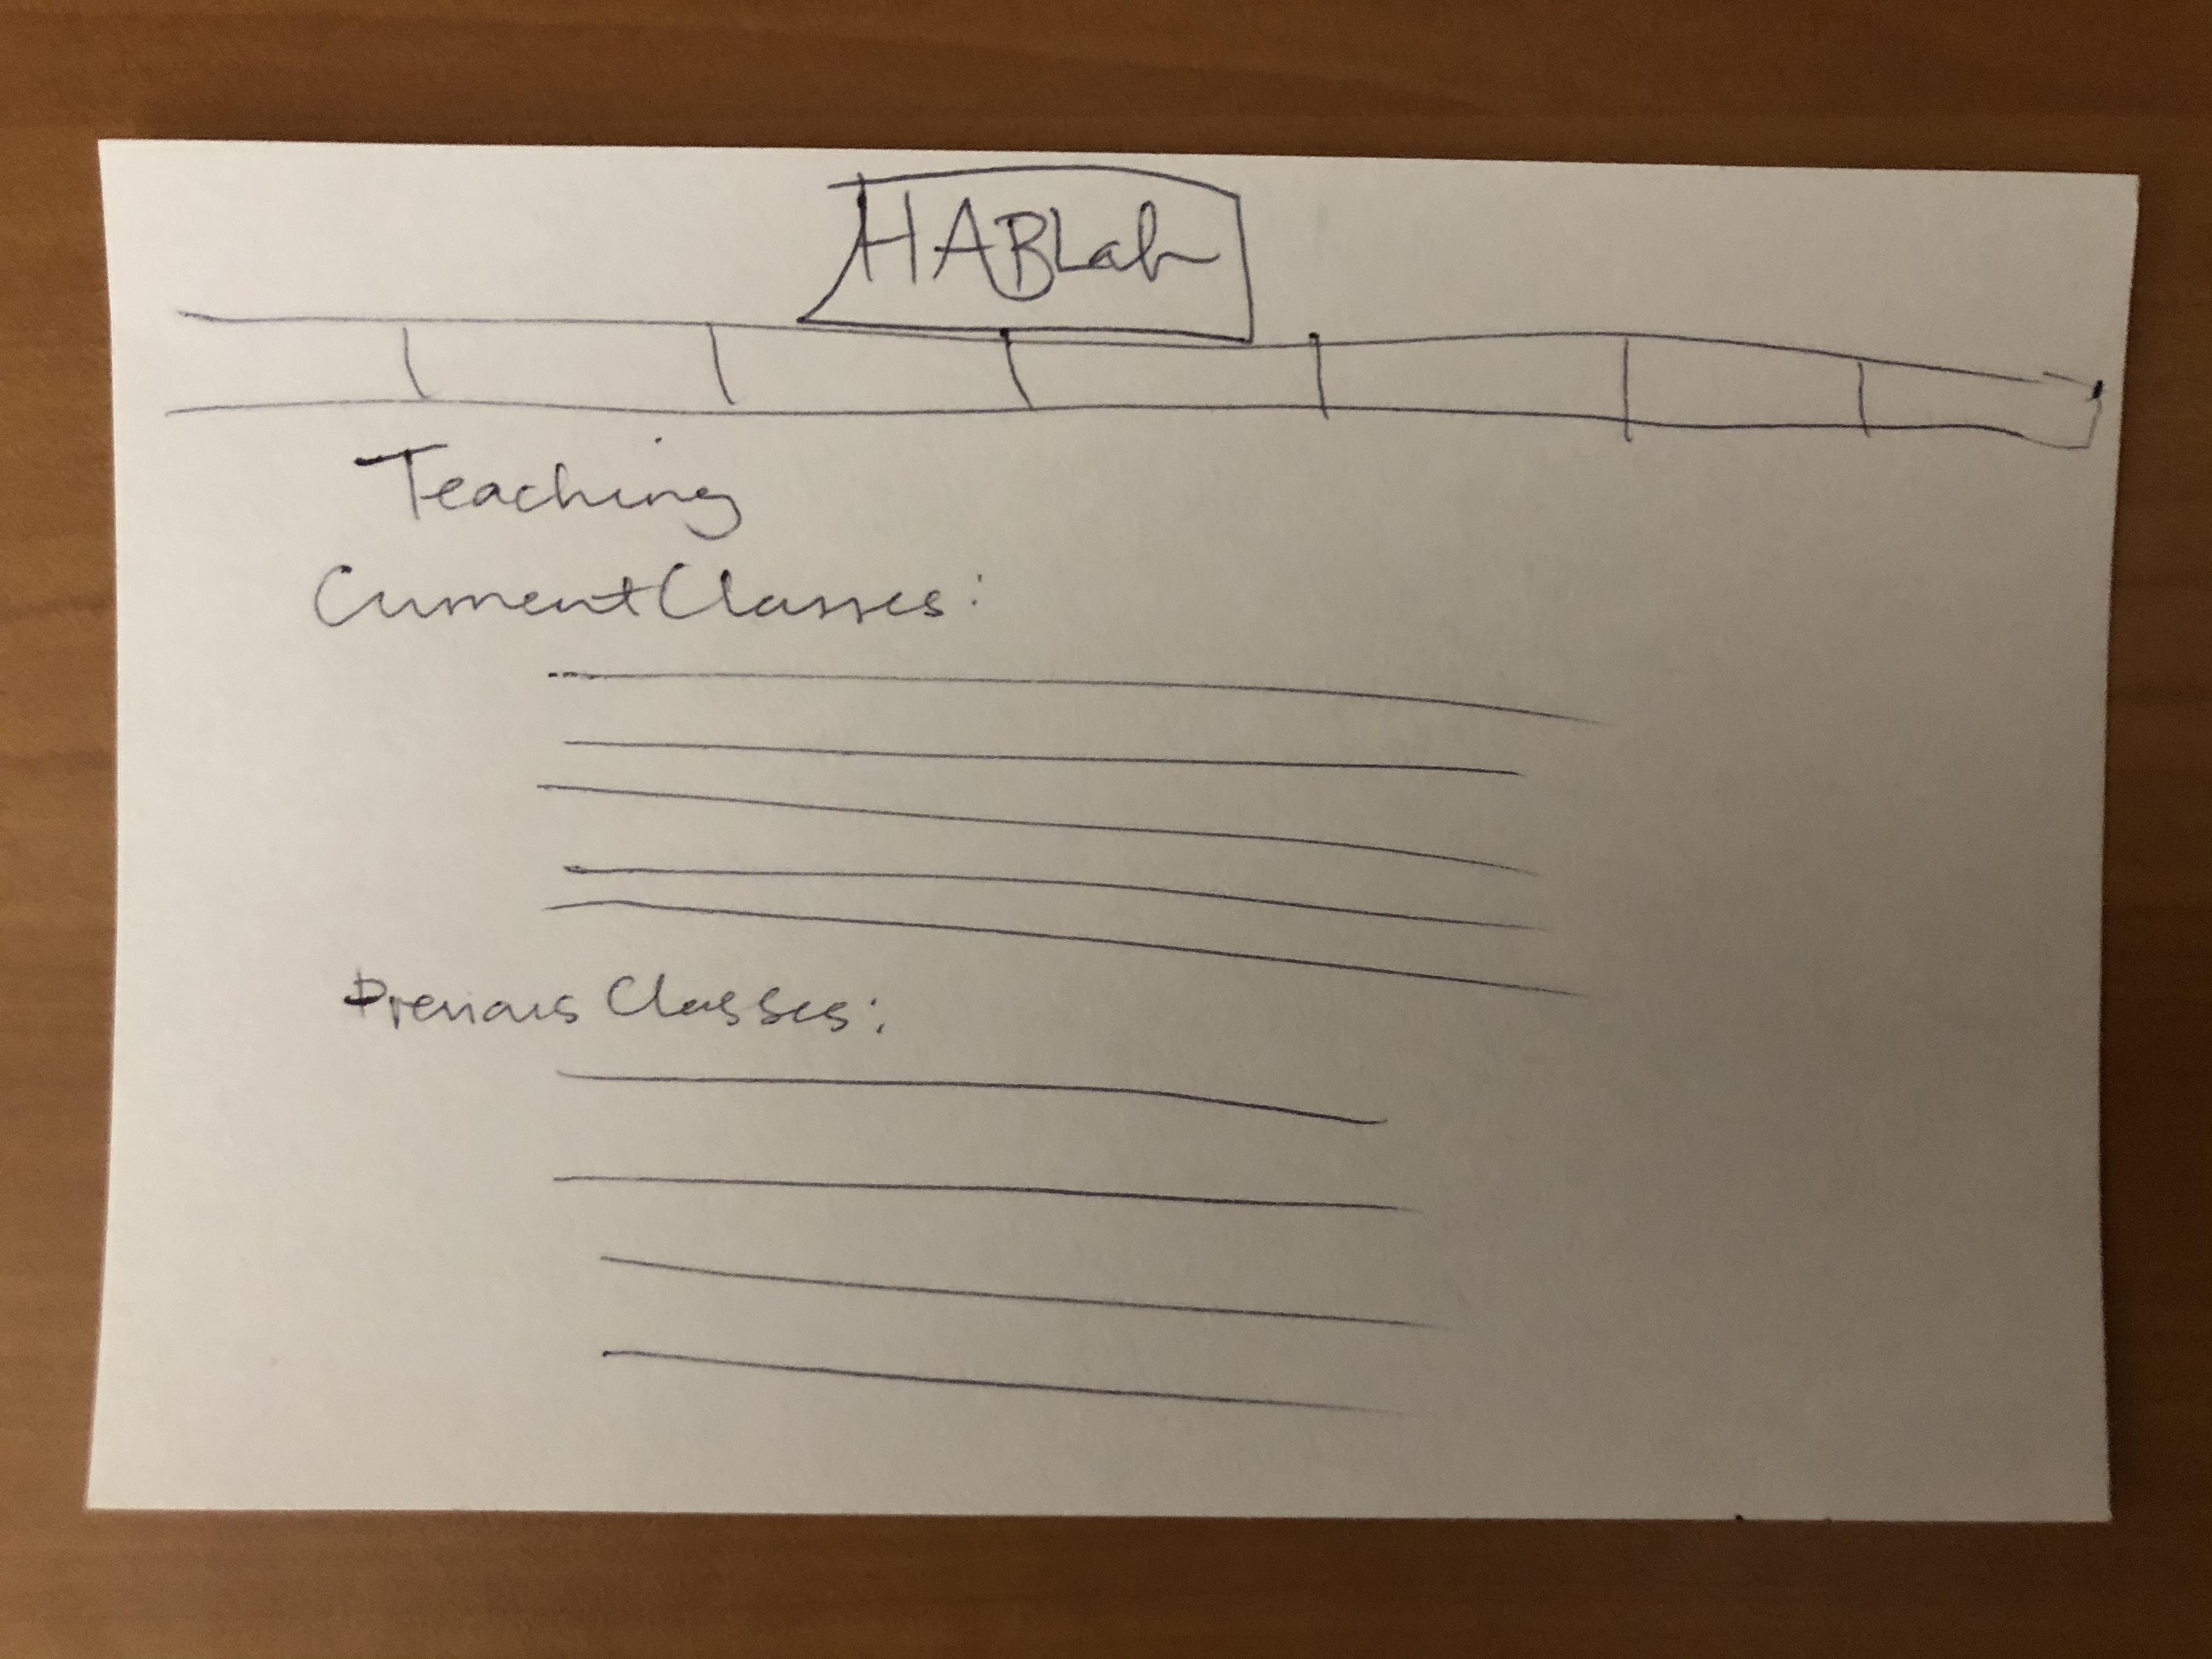 HABLab
Teaching
Current Classes:
Previous Classes: